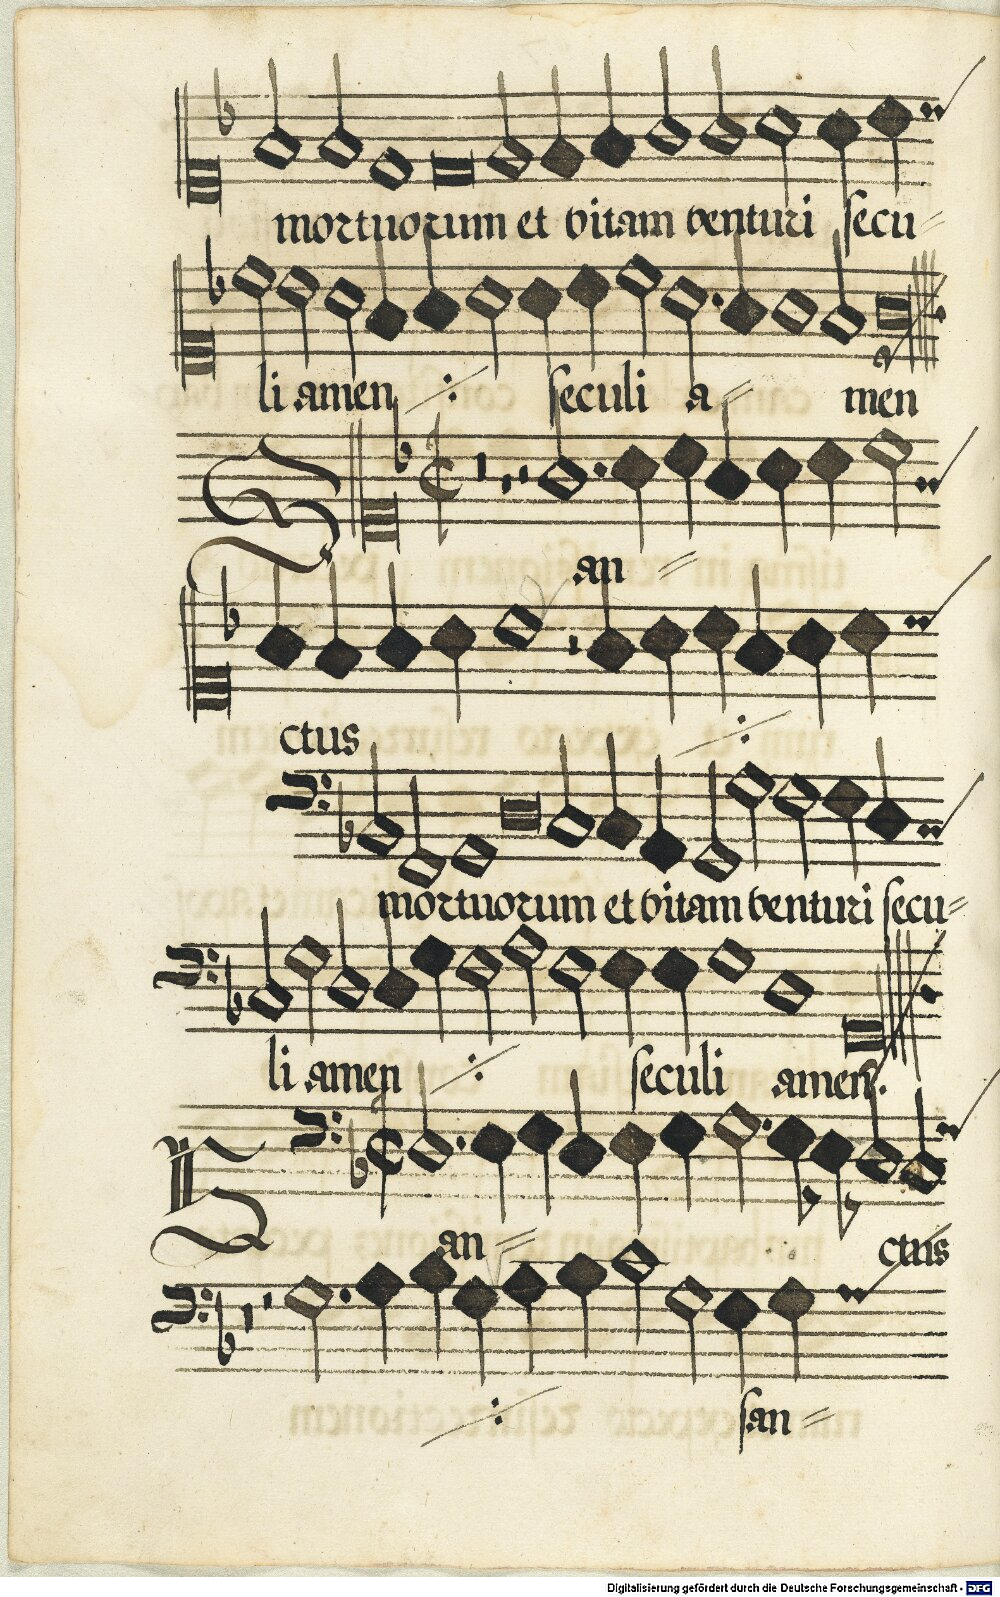 mortuorum et vitam venturi secu
li amen seculi a men
S an
ctus
mortuorum et vitam venturi secu-
li amen seculi amen.
S an ctus
san
Digitalisierung gefördert durch die Deutsche Forschungsgemeinschaft - DFG